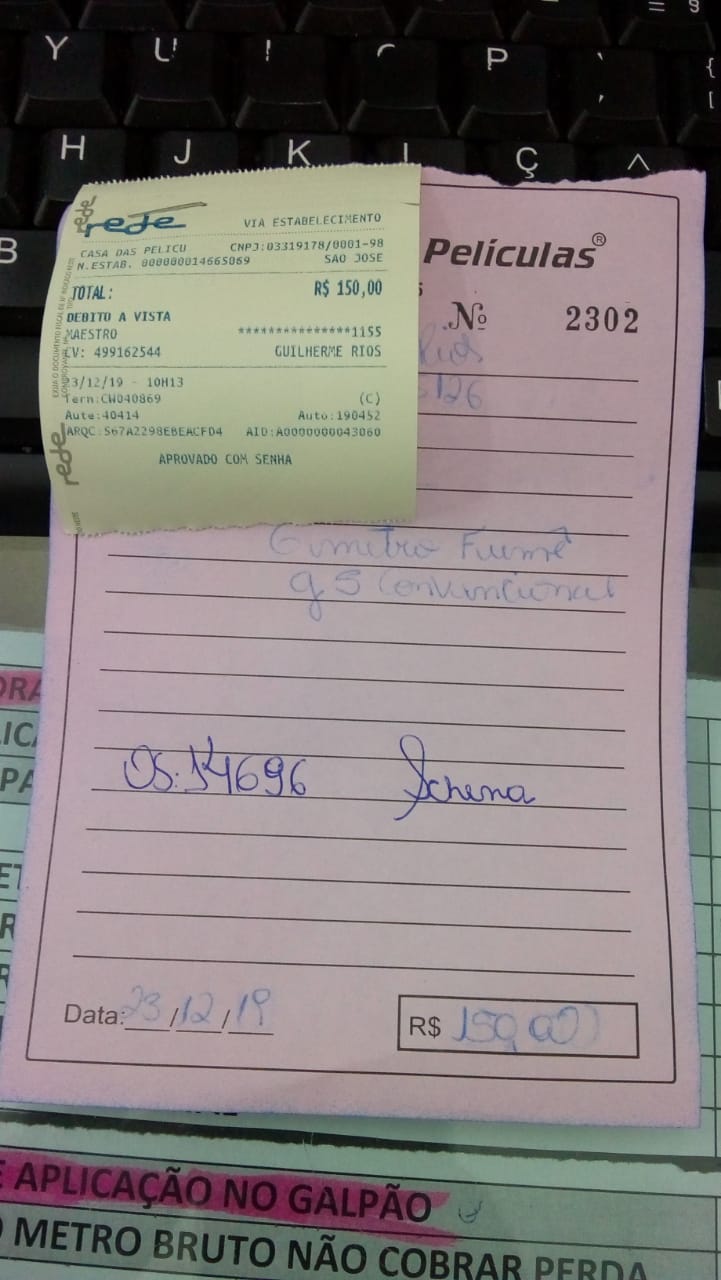 = §
Y U P ` {
[
H J K L Ç ^
B
rede VIA ESTABELECIMENTO
CASA DAS PELICU CNPJ:03319178/0001-98
N.ESTAB. 000000014665069 SAO JOSE
TOTAL: R$ 150,00
DEBITO A VISTA
MAESTRO ***************1155
CV: 499162544 GUILHERME RIOS
23/12/19 - 10H13
Term:CW040869 (C)
Aute:40414 Auto:190452
ARQC:567A2298EBEACFD4 AID:A0000000043060
APROVADO COM SENHA
rede
rede
Películas®
Nº 2302
126
metro Fumê
g5 Convencional
OS: 14696 Schena
Data: 23/12/19 R$ 150,00
E APLICAÇÃO NO GALPÃO
O METRO BRUTO NÃO COBRAR PERDA